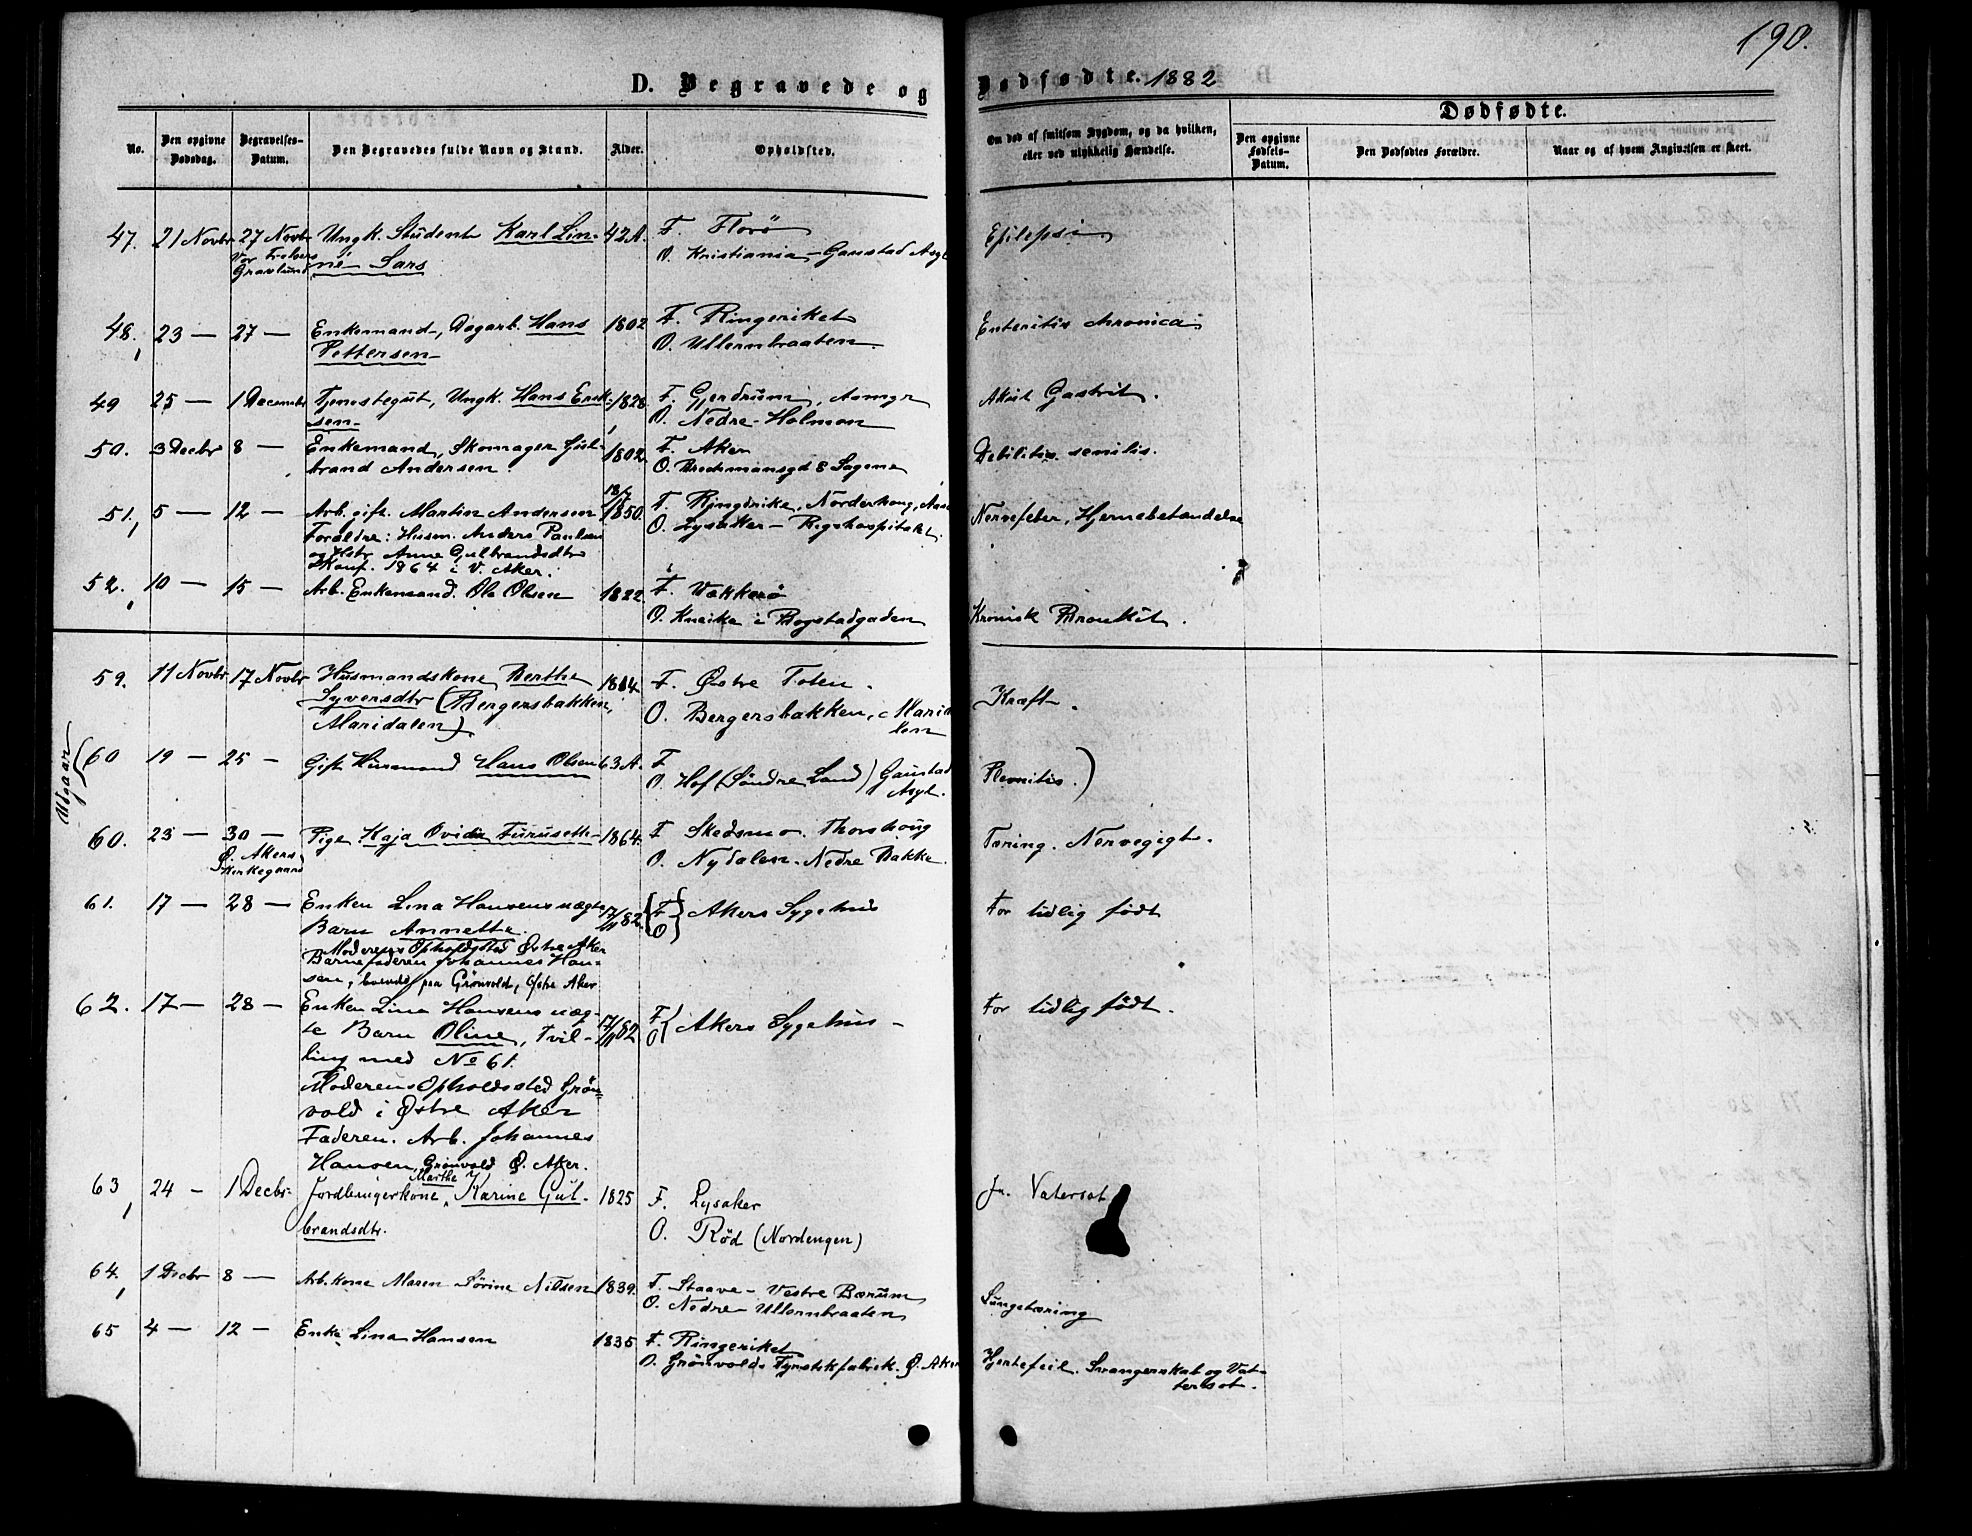 190.
D. Begravede og Dødfødte. 1882
No.
Den opgivne Dødsdag.
Begravelses-Datum.
Den Begravedes fulde Navn og Stand.
Alder.
Opholdsted.
Om død af smitsom Sygdom, og da hvilken, eller ved ulykkelig Hændelse.
Dødfødte.
Den opgivne Fødsels-Datum.
Den Dødfødtes Forældre.
Naar og af hvem Angivelsen er skeet.
47. 21 Novbr 27 Novbr Ungk. Student Karl Lin- 42 A. F. Florö Epilepsi
Vor Frelsers Gravlund né Sars O. Kristiania - Gaustad Asyl
48. 23 — 27 — Enkemand, Dagarb. Hans 1802 F. Ringeriket Enteritis chronica
Pettersen O. Ullernbraaten
49 25 — 1 December Tjenestegut, Ungk. Hans Erik- 1828. F. Gjerdrum, Asmyr Akut Gastrit.
sen O. Nedre Holmen
50. 3 Decbr 8 — Enkemand, Skomager Gul- 1802. F. Aker Debilitas senilis.
brand Andersen. O. Brochmansgd 8 Sagene
51. 5 — 12 — Arb. gift. Martin Andersen 1850. F. Ringerike, Norderhoug, Nervefeber, Hjernebetændelse
Forældre: Husm. Anders Paulsen O. Lysaker - Rigshospitalet
og Hstr Anne Gulbrandsdtr
Konf. 1864 i V. Aker.
52. 10 — 15 — Arb. Enkemand. Ole Olsen 1822. F. Vækkerö
O. Kneika i Bogstadgaden Kronisk Bronkit.
59. 11 Novbr 17 Novbr Husmandskone Berthe 1814. F. Østre Toten. Kræft.
Syversdtr (Bergersbakken, O. Bergersbakken, Marida
Maridalen) len
Udgaar (60 19 — 25 — Gift Husmand Hans Olsen 63 A. F.
O. Hof (Søndre Land) Gaustad Asyl. Plevritis.)
60. 23 — 30 — Pige Kaja Ovidia Furuseth 1864. F Skedsmo. Thorshoug Tæring. Nervegigt.
Ø. Akers Kirkegaard O. Nydalen - Nedre Bakke.
61. 17 — 28 — Enken Lina Hansens uægte 17/11 82. {F O} Akers Sygehus For tidlig födt
Barn Annette.
Moderens Opholdssted Østre Aker
Barnefaderen Johannes Han-
sen, boende paa Grönvold, Østre Aker
62. 17 — 28 — Enken Lina Hansens uæg- 17/11 82. F O{ Akers Sygehus — For tidlig födt.
te Barn Oline, Tvil-
ling med No 61.
Moderens Opholdssted Grön-
vold i Østre Aker
Faderen. Arb. Johannes
Hansen, Grönvold Ø. Aker.
63 24 — 1 Decbr. Jordbrugerkone Marthe Karine Gul- 1825 F. Lysaker Vatersot
brandsdtr. O. Röd (Nordengen)
64. 1 Decbr 8 — Arb. kone Maren Sörine Nilsen 1839. F. Staave - Vestre Bærum
O. Nedre Ullernbraaten Lungetæring
65 4 — 12 — Enke Lina Hansen 1835 F. Ringeriket
O. Grönvolds Fyrstikfabrik. Ø. Aker Hjertefeil. Svangerskab og Vat-
tersot.